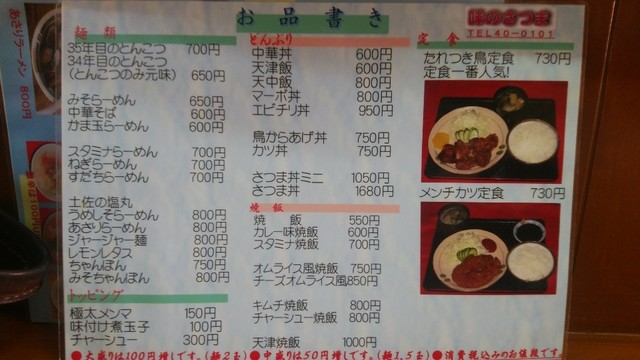 お品書き
味のさつま
TEL40-0101
麺類
35年目のとんこつ 700円
34年目のとんこつ
(とんこつのみ元味) 650円
みそらーめん 650円
中華そば 600円
かま玉らーめん 600円
スタミナらーめん 700円
ねぎらーめん 700円
すだちらーめん 700円
土佐の塩丸
うめしそらーめん 800円
あさりらーめん 800円
ジャージャー麺 800円
レモンレタス 800円
ちゃんぽん 750円
みそちゃんぽん 800円
トッピング
極太メンマ 150円
味付け煮玉子 100円
チャーシュー 300円
どんぶり
中華丼 600円
天津飯 600円
天中飯 800円
マーボ丼 800円
エビチリ丼 950円
鳥からあげ丼 750円
カツ丼 750円
さつま丼ミニ 1050円
さつま丼 1680円
焼飯
焼飯 550円
カレー味焼飯 600円
スタミナ焼飯 700円
オムライス風焼飯 750円
チーズオムライス風850円
キムチ焼飯 800円
チャーシュー焼飯 800円
天津焼飯 1000円
定食
たれつき鳥定食 730円
定食一番人気!
メンチカツ定食 730円
●大盛りは100円増しです。(麺2玉)●中盛りは50円増しです。(麺1.5玉)●消費税込みのお値段です。
あさりラーメン 800円